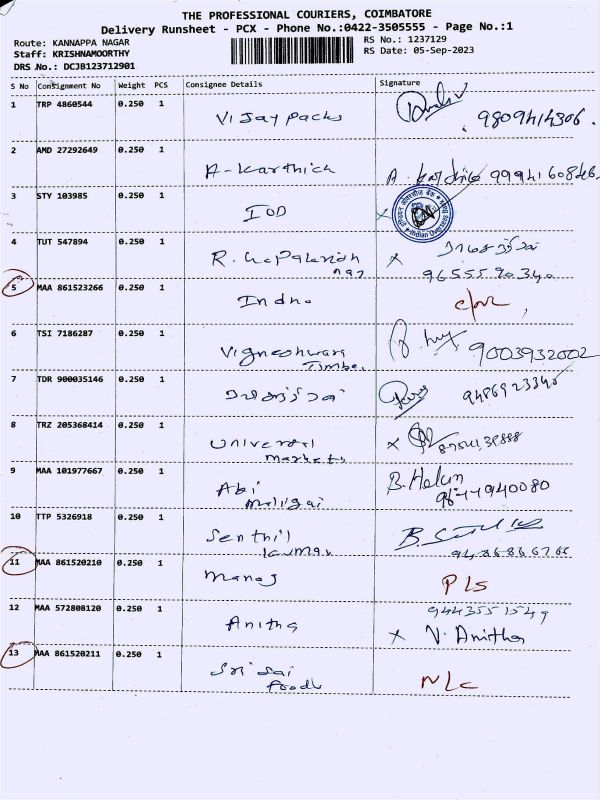 THE PROFESSIONAL COURIERS, COIMBATORE
Delivery Runsheet - PCX - Phone No.:0422-3505555 - Page No.:1
Route: KANNAPPA NAGAR
Staff: KRISHNAMOORTHY
DRS No.: DCJB123712901
RS No.: 1237129
RS Date: 05-Sep-2023
S No Consignment No Weight PCS Consignee Details Signature
1 TRP 4860544 0.250 1 Vijay packs
2 AMD 27292649 0.250 1 A-Karthick
3 STY 103985 0.250 1 IOD
4 TUT 547894 0.250 1 R.
9655590340
5 MAA 861523266 0.250 1
6 TSI 7186287 0.250 1 Vigneshwara 9003932002
Timber
7 TDR 900035146 0.250 1 9486923345
8 TRZ 205368414 0.250 1 Universal
Markets
9 MAA 101977667 0.250 1 Abi B. Helan
Maligai
10 TTP 5326918 0.250 1 Senthil
kumar
11 MAA 861520210 0.250 1 Manoj PLS
12 MAA 572808120 0.250 1 Anitha 9443551549
V. Anitha
13 MAA 861520211 0.250 1 Sri Sai NLC
foods